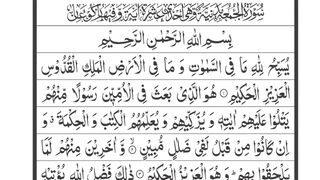 سُوْرَةُ الْجُمُعَةِ مَدَنِيَّةٌ وَّهِیَ اِحْدٰی عَشْرَةَ اٰيَةً وَّفِيْهَا رُكُوْعَانِ
بِسْمِ اللّٰهِ الرَّحْمٰنِ الرَّحِيْمِ
يُسَبِّحُ لِلّٰهِ مَا فِی السَّمٰوٰتِ وَ مَا فِی الْاَرْضِ الْمَلِكِ الْقُدُّوْسِ
الْعَزِيْزِ الْحَكِيْمِ ۝ هُوَ الَّذِیْ بَعَثَ فِی الْاُمِّيّٖنَ رَسُوْلًا مِّنْهُمْ
يَتْلُوْا عَلَيْهِمْ اٰيٰتِهٖ وَ يُزَكِّيْهِمْ وَ يُعَلِّمُهُمُ الْكِتٰبَ وَ الْحِكْمَةَ ۗ وَ
اِنْ كَانُوْا مِنْ قَبْلُ لَفِیْ ضَلٰلٍ مُّبِيْنٍ ۝ وَّ اٰخَرِيْنَ مِنْهُمْ لَمَّا
يَلْحَقُوْا بِهِمْ ؕ وَ هُوَ الْعَزِيْزُ الْحَكِيْمُ ۝ ذٰلِكَ فَضْلُ اللّٰهِ يُؤْتِيْهِ